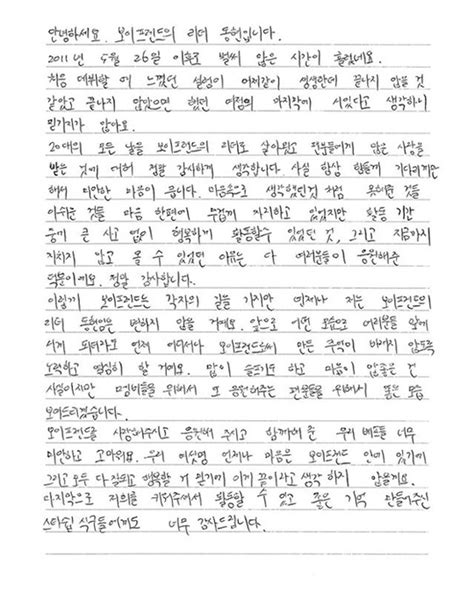 안녕하세요. 보이프렌드의 리더 동현입니다.
2011년 5월 26일 이후로 벌써 많은 시간이 흘렀네요.
처음 데뷔할 때 느꼈던 설렘이 어제같이 생생한데 끝나지 않을 것
같았고 끝나지 않았으면 했던 여정의 마지막에 서있다고 생각하니
믿기지가 않아요.
20대의 모든 날을 보이프렌드의 리더로 살아왔고 팬분들에게 많은 사랑을
받은 것에 대해 정말 감사하게 생각합니다. 사실 항상 힘들게 기다리게만
해서 미안한 마음이 듭니다. 마음속으로 생각했던것 처럼 못해준 것들
아쉬운 것들 마음 한편에 무겁게 자리하고 있었지만 활동 기간
동안 큰 사고 없이 행복하게 활동할수 있었던 것, 그리고 지금까지
지치지 않고 올 수 있었던 이유는 다 여러분들이 응원해준
덕분이에요. 정말 감사합니다.
이렇게 보이프렌드는 각자의 길을 가지만 언제나 저는 보이프렌드의
리더 동현임은 변하지 않을 거에요. 앞으로 어떤 모습으로 여러분들 앞에
서게 되더라도 언제 어디서나 보이프렌드로써 만든 추억이 바래지 않도록
노력하고 열심히 할 거에요. 많이 슬프기도 하고 마음이 안좋은 건
사실이지만 멤버들을 위해서 또 응원해주는 팬분들을 위해서 좋은 모습
보여드리겠습니다.
보이프렌드를 사랑해주시고 응원해 주시고 함께해 준 우리 베프들 너무
미안하고 고마워요. 우리 여섯명 언제나 마음은 보이프렌드 안에 있기에
그리고 모두 다 잘되고 행복할 거 알기에 이게 끝이라고 생각 하지 않을게요.
마지막으로 저희를 키워주셔서 활동할 수 있고 좋은 기억 만들어주신
스타쉽 식구들에게도 너무 감사드립니다.